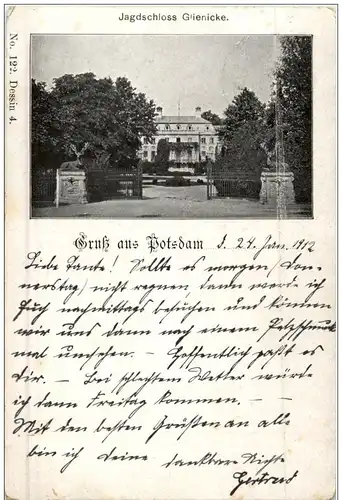 Jagdschloss Glienicke.
No. 122. Dessin 4.
Gruß aus Potsdam d. 24. Jan. 1912
Liebe Tante! Sollte es morgen (Don-
nerstag) nicht regnen dann werde ich
Euch nachmittags besuchen und können
wir uns dann nach einem Pelzschmuck
mal umsehen. – Hoffentlich paßt es
Dir. – Bei schlechtem Wetter würde
ich dann Freitag kommen. – –
Mit den besten Grüßen an alle
bin ich Deine dankbare Nichte
Gertrud